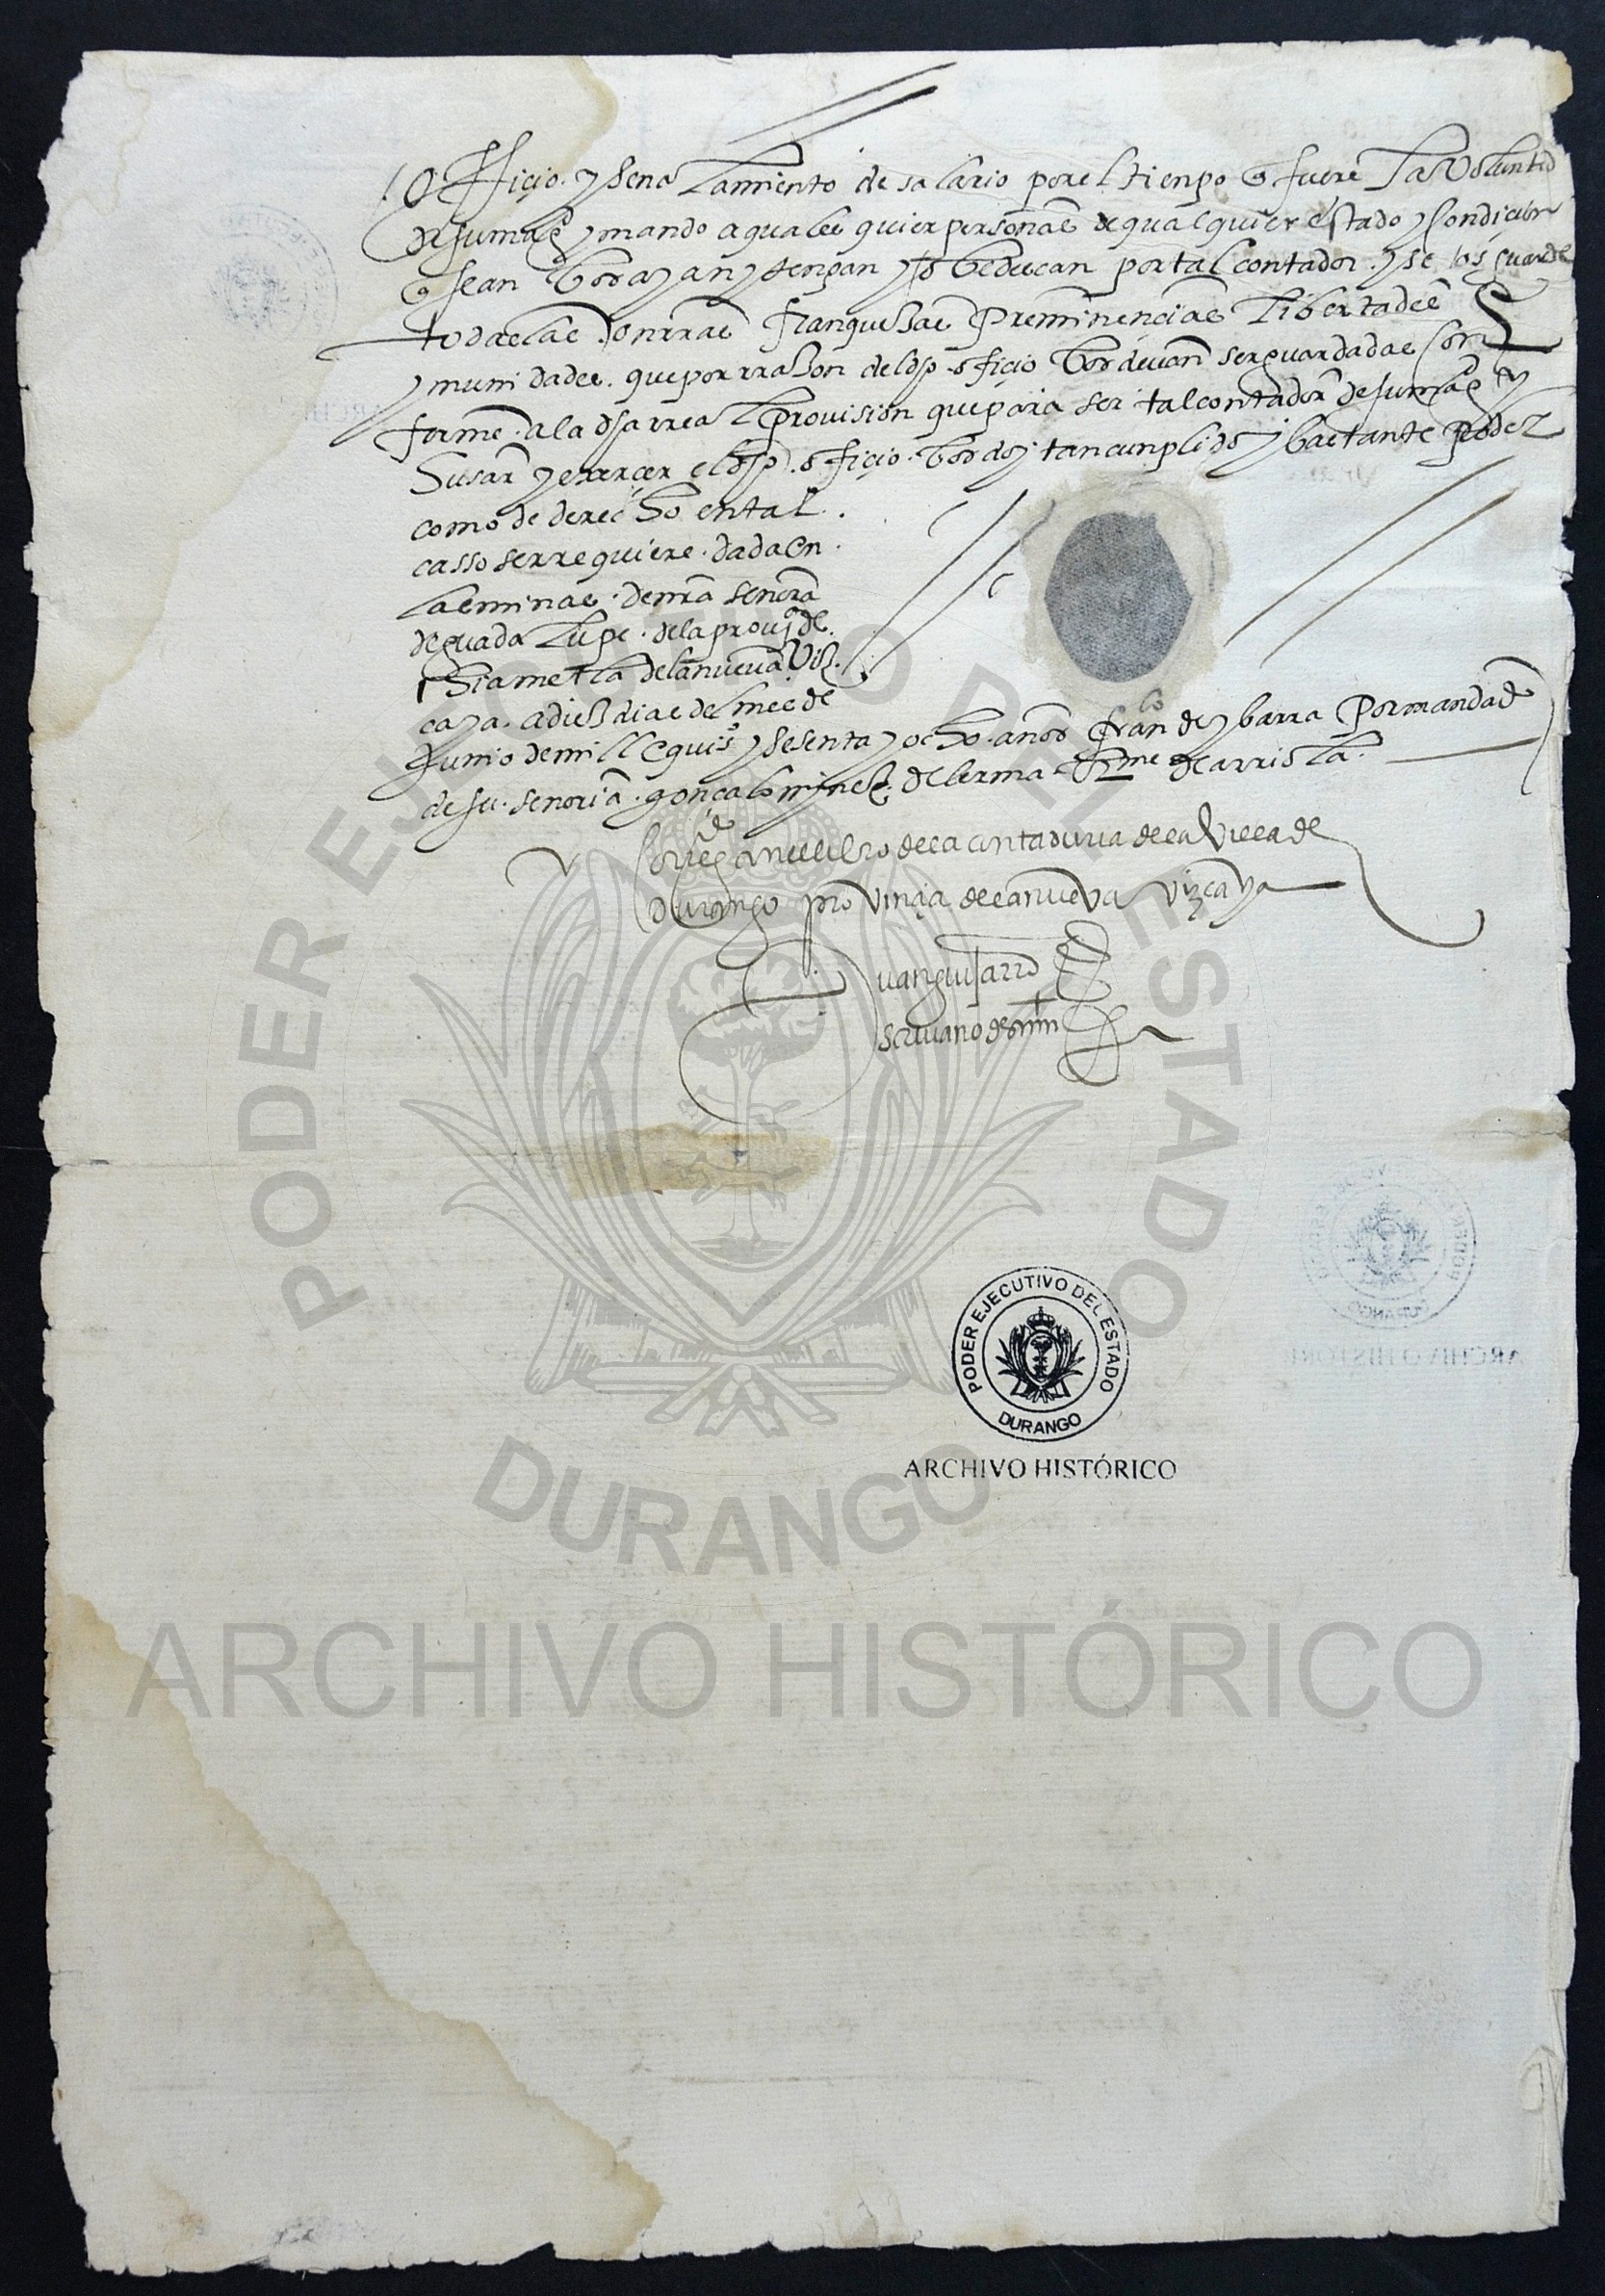 officio y señalamiento de salario por el tienpo q̃ fuere la voluntad
de su mag y mando a quales quier personas de qualquier estado y condicion
q̃ sean vos ayan y tengan y obedezcan por tal contador. y se vos guarden
todas las honrras franquezas preminencias libertades
ynmunidades. que por rrazon del dho officio vos devan ser guardadas con
forme. a la dha rreal provision que para ser tal contador de su mag y
usar y exercer el dho. officio. vos doy tan cunplido y bastante poder
como de derecho en tal.
casso se rrequiere. dada en.
las minas. de nra señora
de guadalupe. de la provi.ª de.
chiametla de la nueva viz.
caya. a diez dias del mes de
junio de mill e quis y sesenta y ocho. años fran.co de ybarra por mandado
de su. señoria. gonçalo mjnez. de lerma. de arriola.
Corregido en el libro de la contaduria de la villa de
durango provinçia de la nueva vizcaya
Juan guisarro
escrivano de
PODER EJECUTIVO DEL ESTADO
DURANGO
ARCHIVO HISTÓRICO
PODER EJECUTIVO DEL ESTADO
DURANGO
ARCHIVO HISTÓRICO